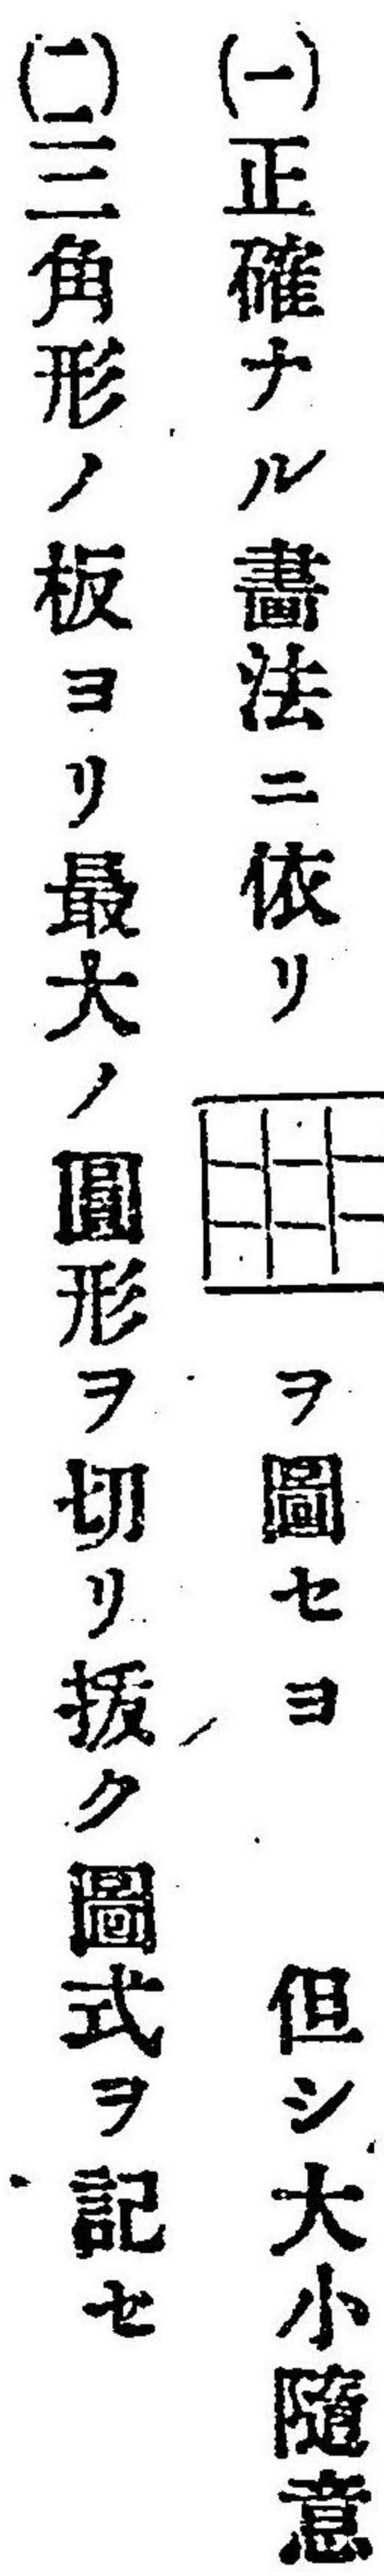 (一)正確ナル畫法ニ依リ ヲ圖セヨ 但シ大小隨意
(二)三角形ノ板ヨリ最大ノ圓形ヲ切リ拔ク圖式ヲ記セ